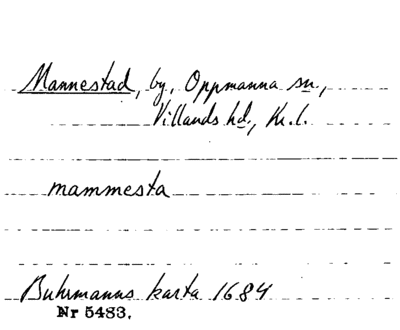 Mannestad, by, Oppmanna sn.,
Villands hd., Kr. l.
mammesta
Buhrmanns karta 1684
Nr 5483.